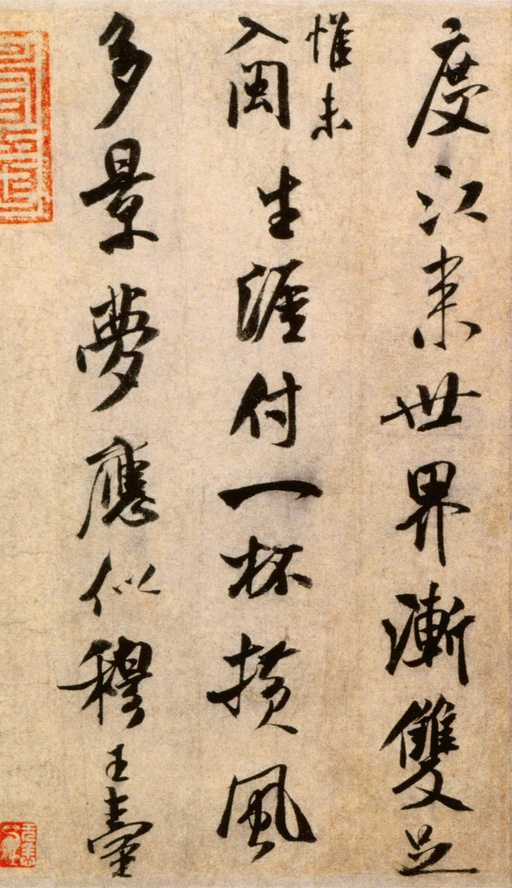 度江来世界漸雙足
惟未
入閩生涯付一杯横風
多景夢應似穆王臺